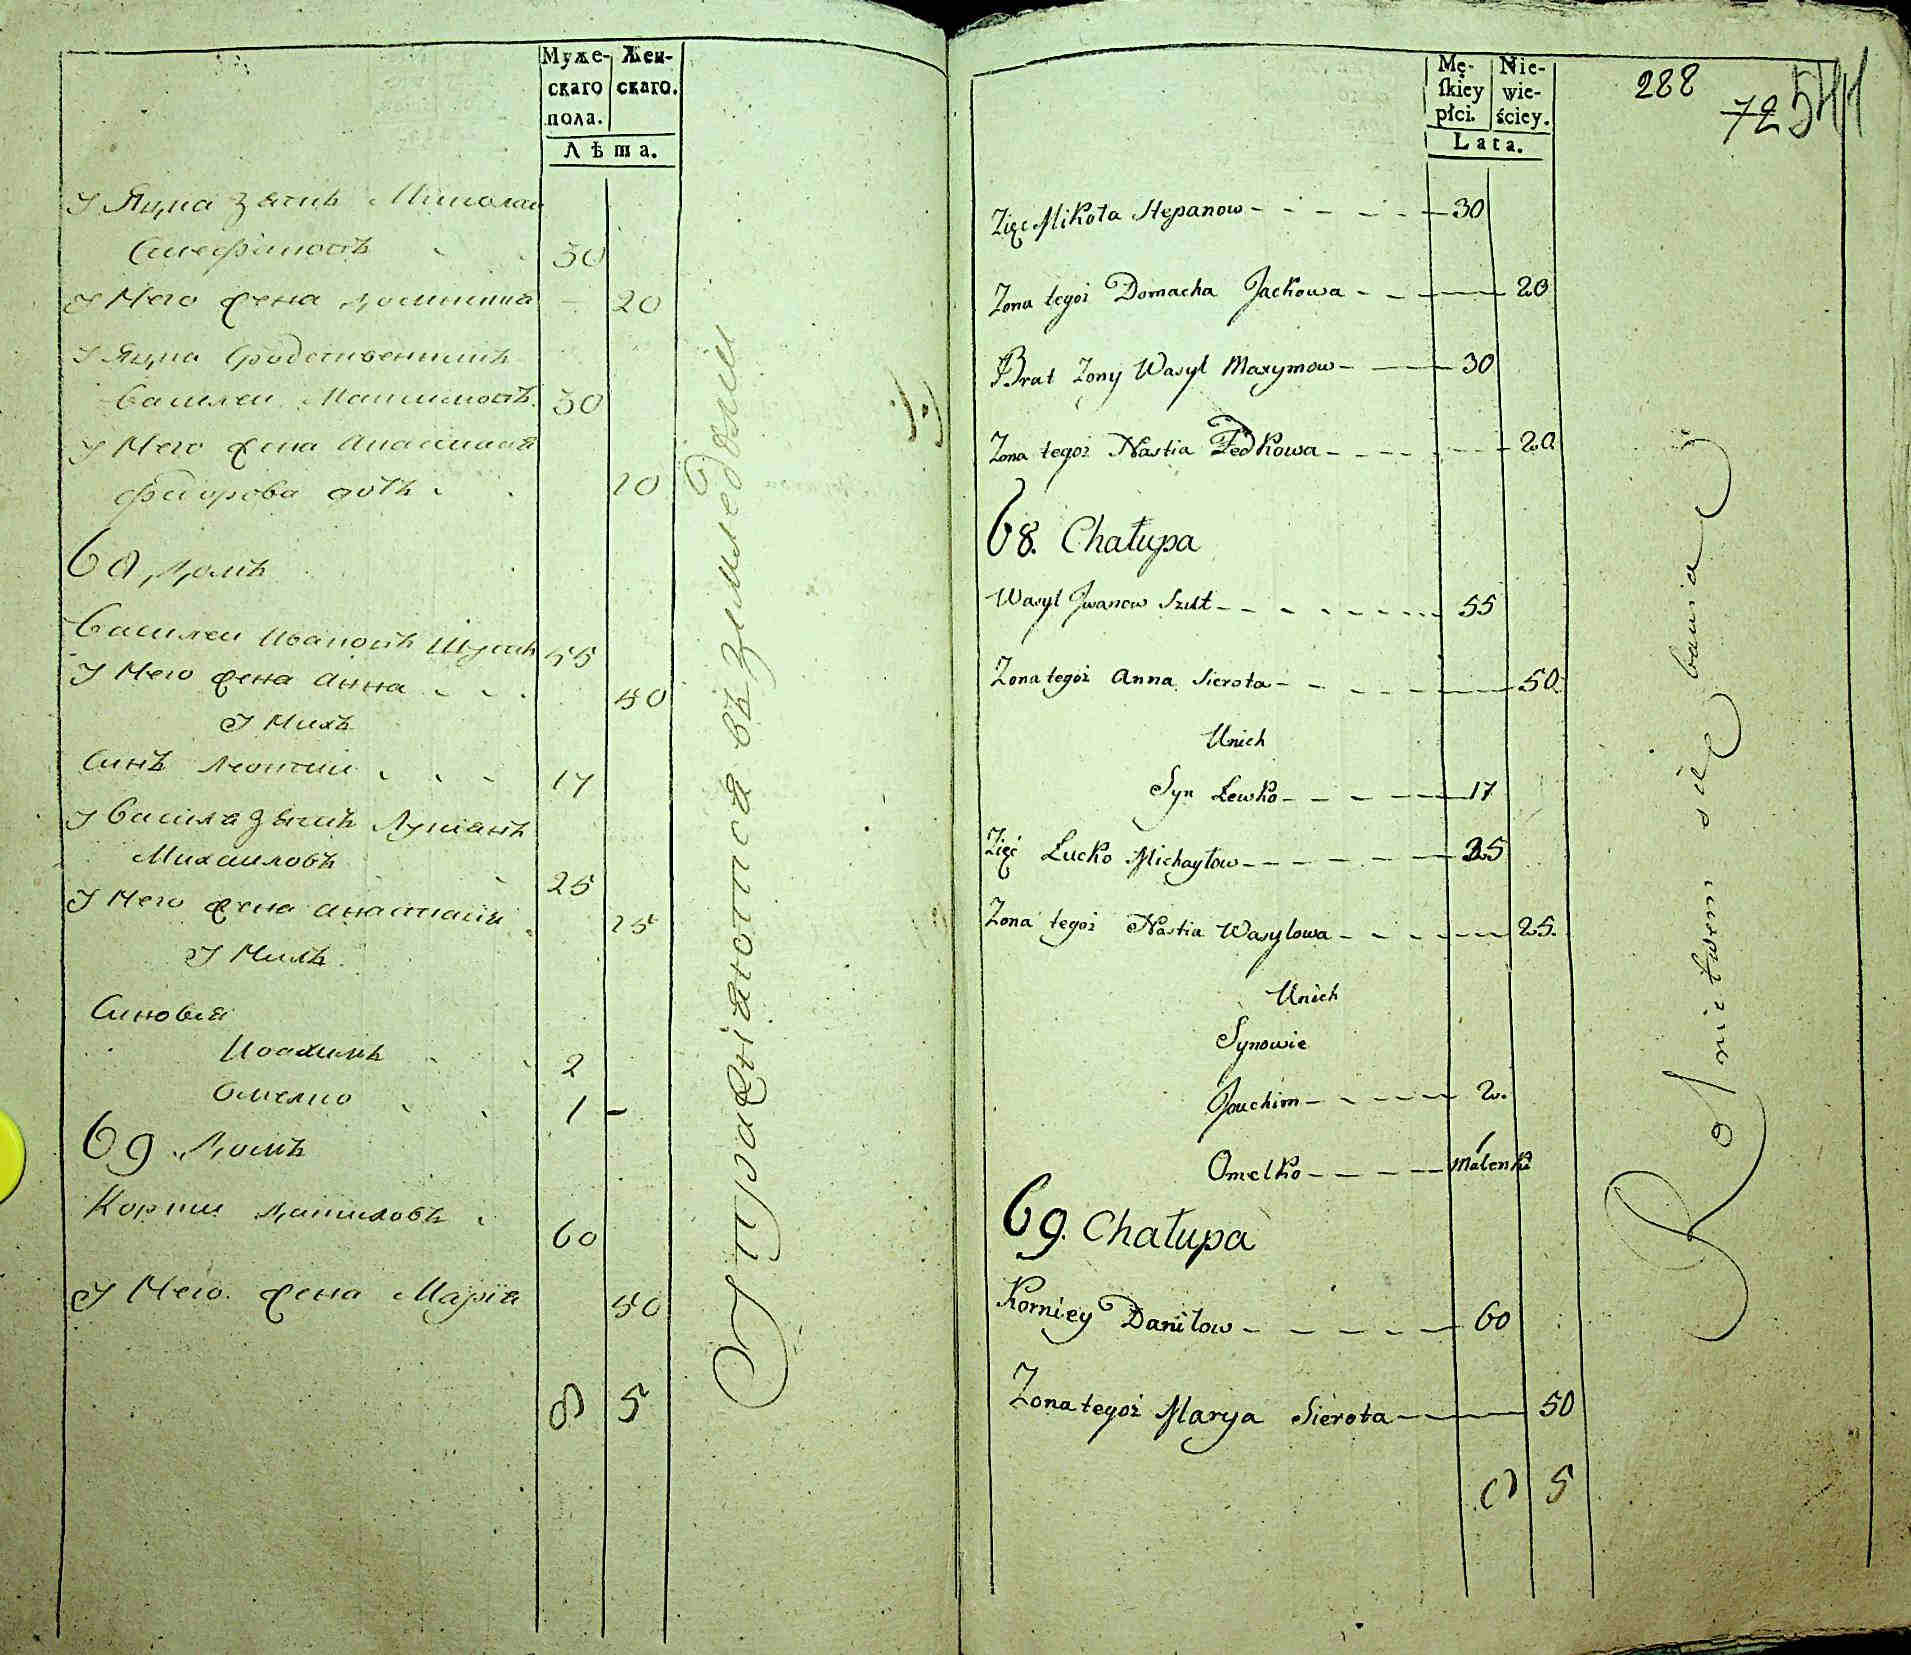 Муже-
скаго
пола.
Жен-
скаго.
Лѣта.
У Яцка зять Николай
Стефановъ 30
У Него жена Домникия - 20
У Яцка
Василей Максимовъ 30
У Него жена Анастасия
Федорова дочь 20
68 Домъ
Василей Ивановъ Шулть 55
У Него жена Анна 50
У Нихъ
Синъ Леонтий 17
У Василя зять Лукіанъ
Михаиловъ 25
У Него жена Анастасия 25
У Нихъ
Синовья
Иоахимъ 2
Омелко 1 -
69 Домъ
Корнѣй Даниловъ 60
У Него жена Марія 50
8 5
Упражняются въ земледелии
Mę-
skiey
płci.
Nie-
wie-
ściey.
Lata.
288
72 541
Zięć Mikoła Stepanow 30
Zona tegoż Domacha Jackowa 20
Brat Zony Wasyl Maxymow 30
Zona tegoż Nastia Fedkowa 20
68. Chałupa
Wasyl Jwanow Szułt 55
Zona tegoż Anna Sierota 50
Unich
Syn Lewko 17
Zięć Łucko Michayłow 25
Zona tegoż Nastia Wasylowa 25.
Unich
Synowie
Joachim 2.
Omelko 1 Malenki
69. Chałupa
Korniey Daniłow 60
Zona tegoż Marya Sierota 50
8 5
Rolnictwem się bawią